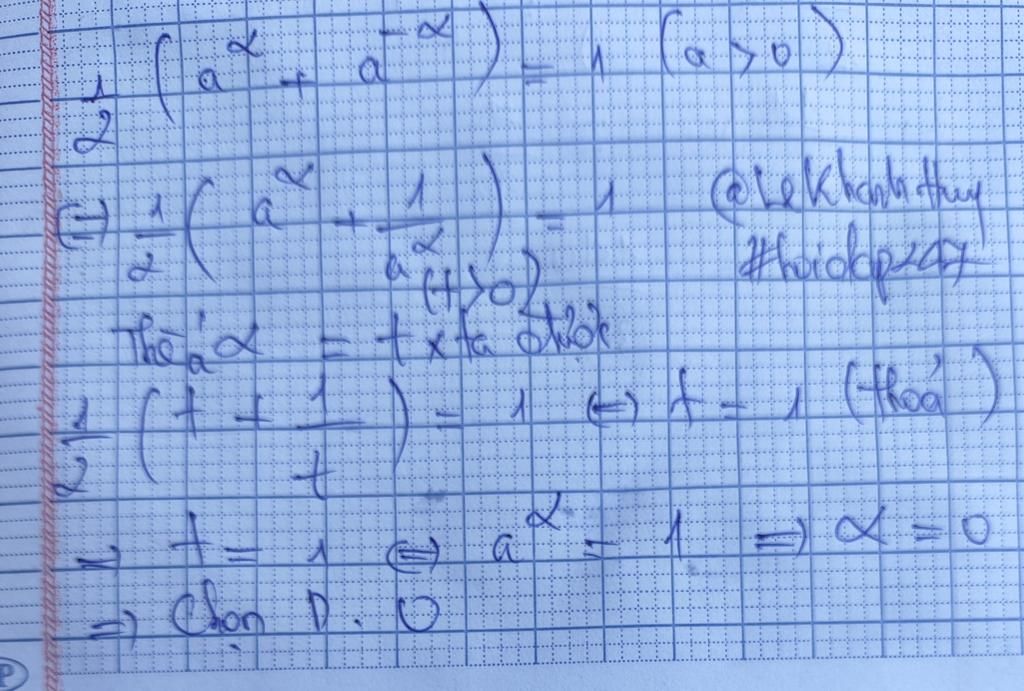 1/2 (a^α + a^-α) = 1 (a > 0)
⇔ 1/2 (a^α + 1/a^α) = 1 @LeKhanhHuy
#hoidap247
(t > 0)
Thế a^α = t ta được
1/2 (t + 1/t) = 1 ⇔ t = 1 (thoả)
⇒ t = 1 ⇔ a^α = 1 ⇒ α = 0
⇒ Chọn D. 0